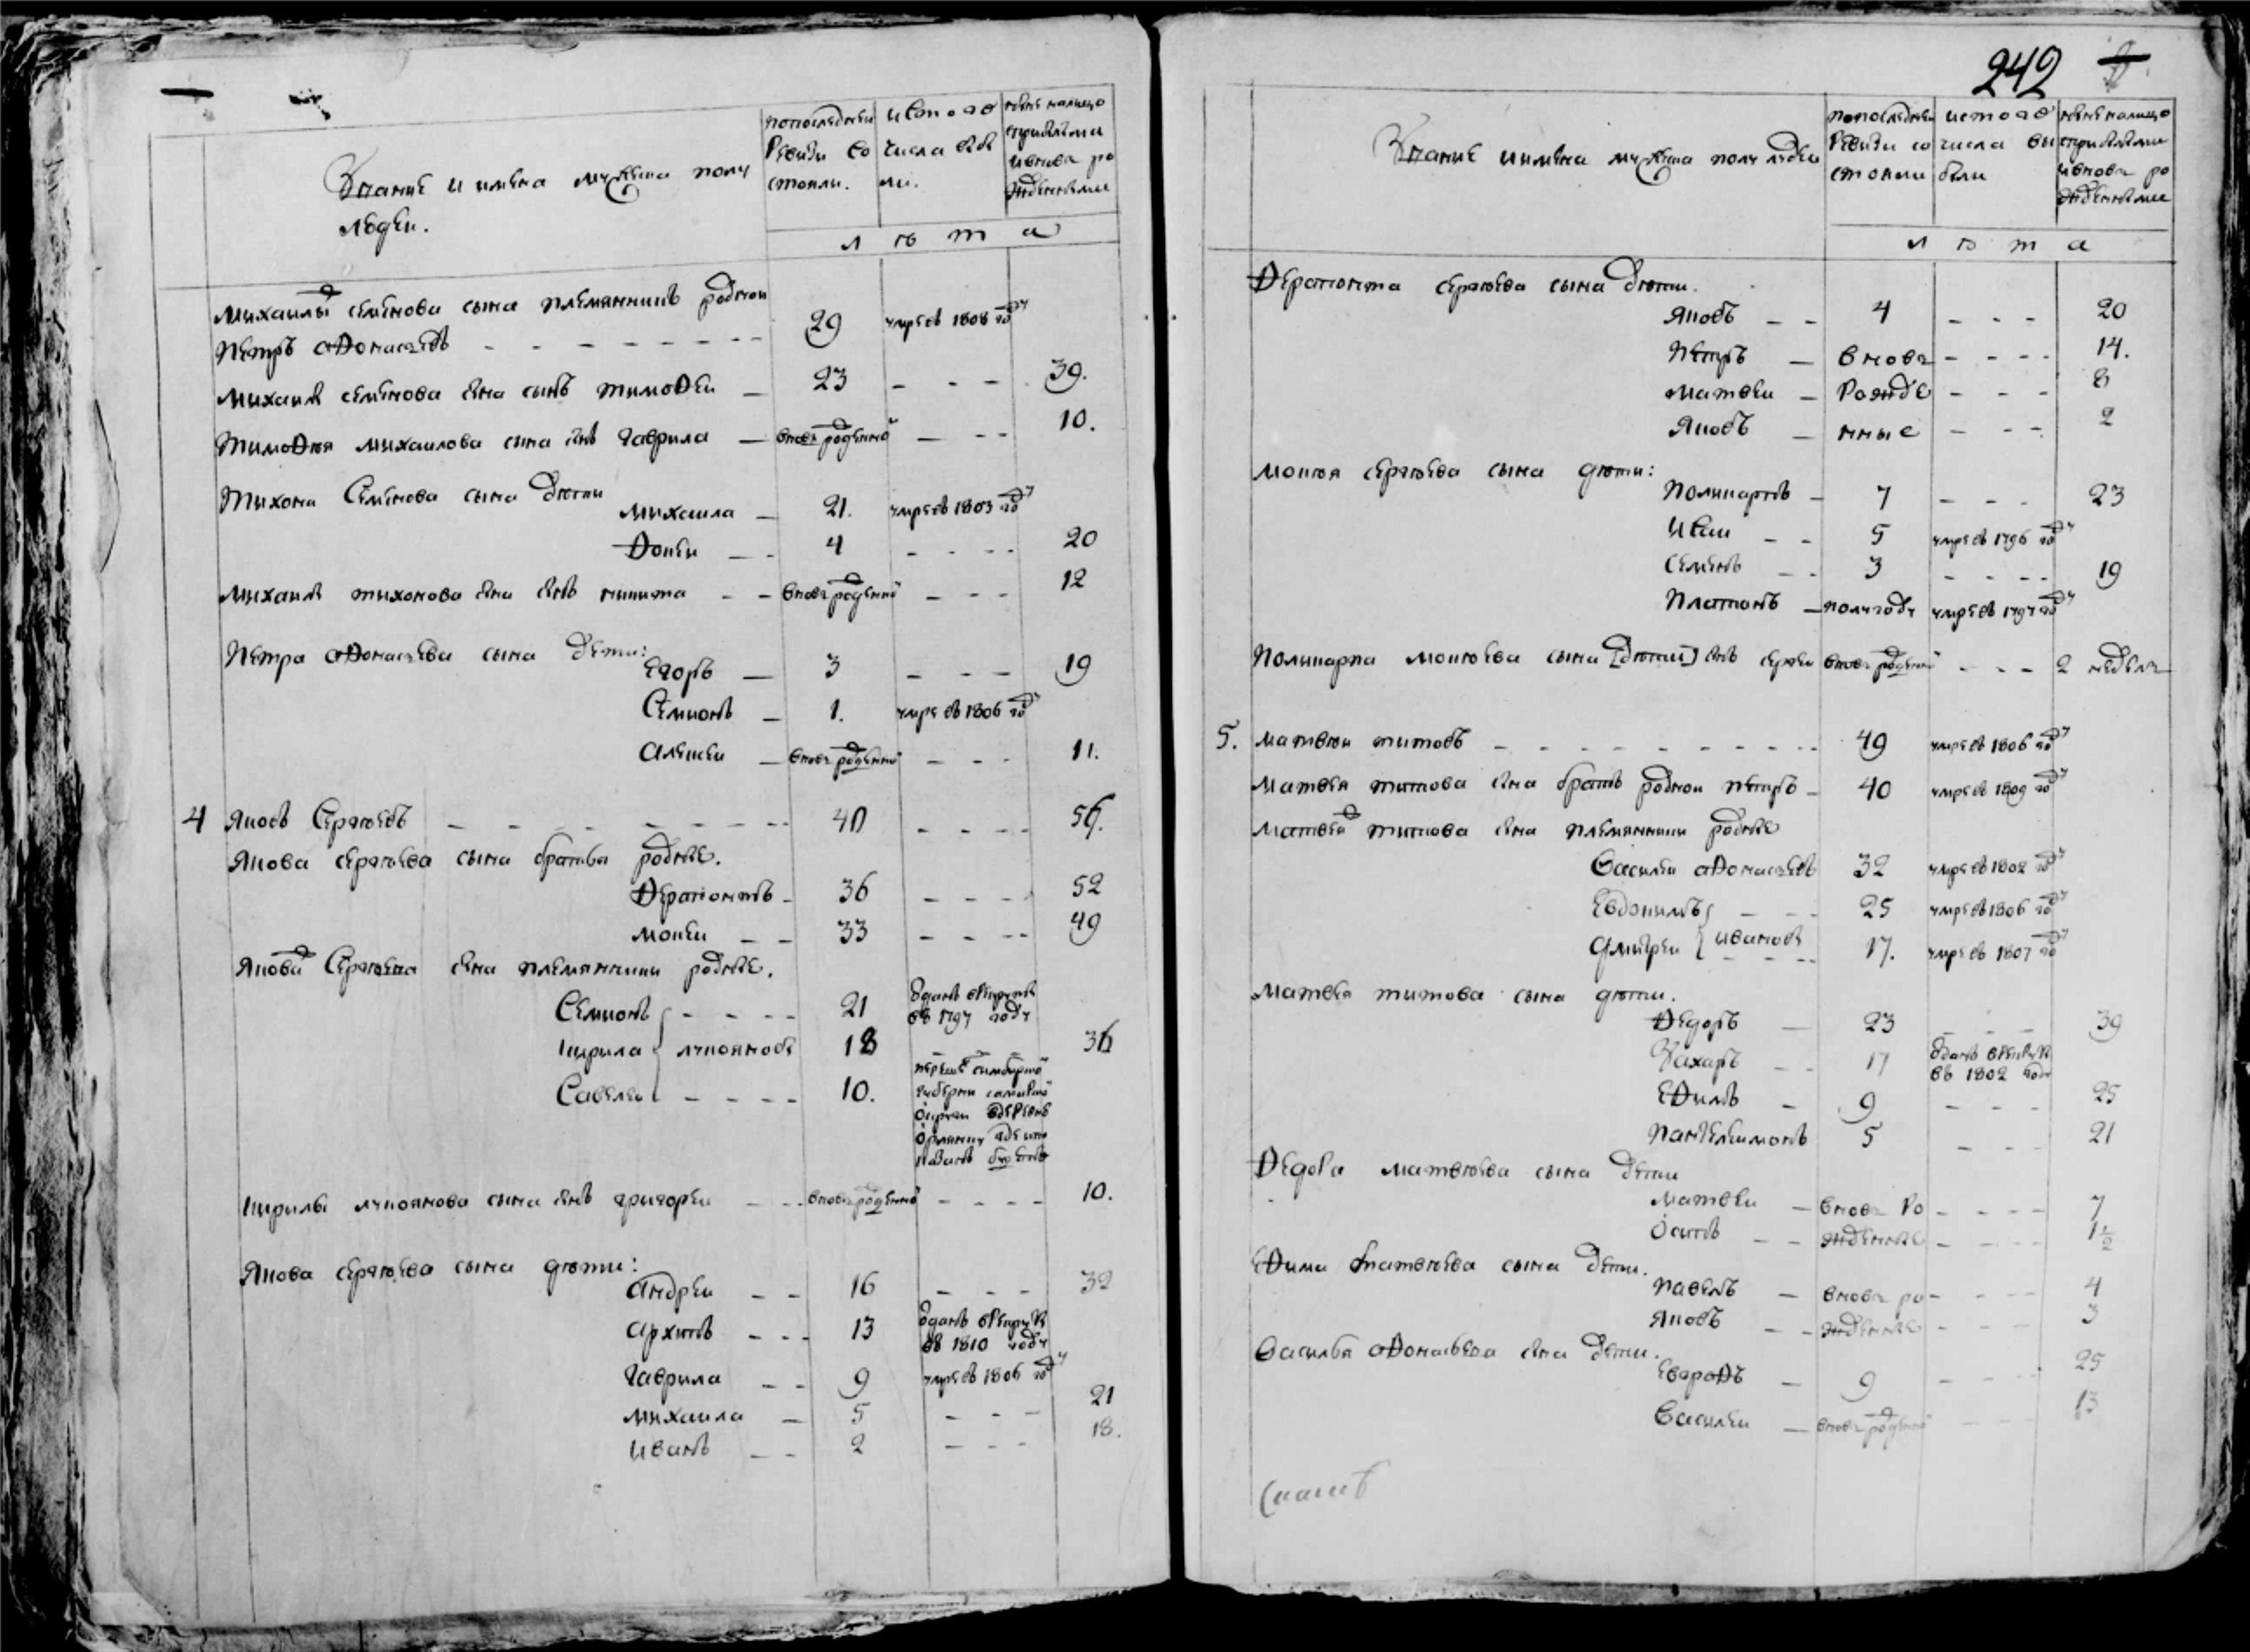 242
Звание и имена мужеска полу
людеи.
попоследнеи
Ревизи со
стояли.
ис того
числа выбы
ли.
ныне налицо
сприбылыми
ивновь ро
жденными
л ѣ т а
Михаилы семенова сына племянникъ роднои
Петръ афонасьевъ - - - 29 умре въ 1808 году
Михаилы семенова сына сынъ тимофеи — 23 - - - 39.
Тимофея михаилова сына сынъ гаврила — вновь рожденной — - - 10.
Тихона Семенова сына дѣти
михаила — 21. умре въ 1803 году
Фокеи — - 4 - - - - 20
Михаилы тихонова сына сынъ никита - - вновь рожденной - - - 12
Петра афонасьева сына дети:
Егоръ — 3 - - - 19
Семионъ — 1. умре въ 1806 году
Алексеи — вновь рожденной - - - 11.
4 Яковъ Сергѣевъ - - - 40 - - - - 56.
Якова сергѣева сына братья родные.
Ферапонтъ - 36 - - - - 52
мокеи - - 33 - - - - 49
Якова Сергѣева сына племянники родные.
Семионъ - - - - 21 Отданъ врекруты
въ 1797 году
кирила лукояновы 18 - - - 36
Савелеи - - - - 10. перешел симбирской
губерни самарской
округи вдеревню
10.
Кирилы лукоянова сына сынъ григореи - - - вновь рожденной - - - - 10.
Якова сергѣева сына дѣти:
Андреи - - 16 - - - 32
Архипъ - - - 13 Отданъ врекруты
въ 1810 году
Гаврила - - 9 умре въ 1806 году
михаила — 5 - - - 21
иванъ - - 2 - - - 18.
Звание иимена мужеска полу людеи
попоследнеи
Ревизи со
стояли
истого
числа вы
были
ныне налицо
сприбылыми
ивновь ро
жденными
л ѣ т а
Ферапонта сергѣева сына дѣти.
Яковъ - - 4 - - - 20
Петръ — вновь - - - - 14.
матвеи — рожде - - - 8
Яковъ — нные - - - 2
мокѣя сергѣева сына дѣти:
Поликарпъ — 7 - - - 23
Иван - - 5 умре въ 1796 году
семенъ - - 3 - - - - 19
Платонъ — полугоду умре въ 1797 году
Поликарпа мокѣева сына [дѣти] сынъ сергеи вновь рожденной - - - 2 недели
5. матвѣи титовъ - - - 49 умре въ 1806 году
матвѣя титова сына братъ роднои петръ - 40 умре въ 1809 году
матвея титова сына племянники родные
Василеи афонасьевъ 32 умре въ 1802 году
Евдокимъ - - - 25 умре въ 1806 году
дмитреи ивановы - - - 17. умре въ 1807 году
матвѣя титова сына дѣти.
Федоръ — 23 - - - 39
Захаръ - - 17 Отданъ врекруты
въ 1802 году
Ефимъ - 9 - - - 25
Пантелеимонъ 5 - - - 21
Федора матвѣева сына дети
матвеи — вновь ро - - - - 7
Осипъ - - жденные - - - 1 1/2
Ефима матвѣева сына дети.
Павелъ — вновь ро - - - 4
Яковъ - - жденные - - - 3
Василья афонасьева сына дети.
Евграфъ — 9 - - - - 25
Василеи — вновь рожденной - - - 13